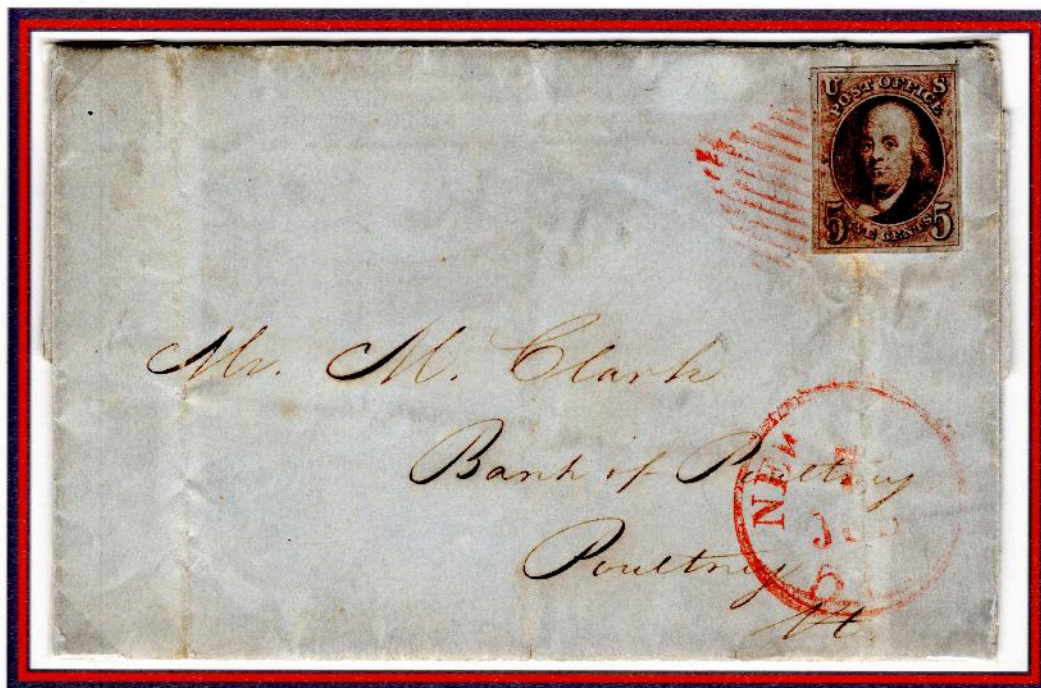 U S
POST OFFICE
5 CENTS 5
Mr. M. Clark
Bank of Poultney
Poultney
Vt.
NEW